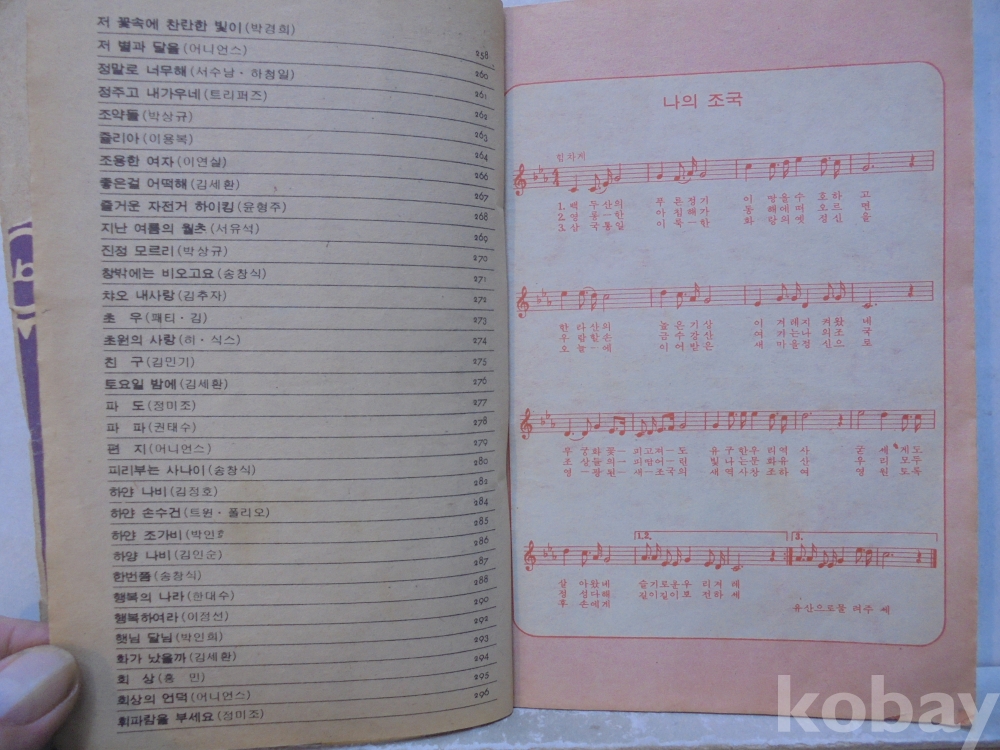 저 꽃속에 찬란한 빛이(박경희)
저 별과 달을(어니언스) 258
정말로 너무해(서수남・하청일) 260
정주고 내가우네(트리퍼즈) 261
조약돌(박상규) 262
쥴리아(이용복) 263
조용한 여자(이연실) 264
좋은걸 어떡해(김세환) 266
즐거운 자전거 하이킹(윤형주) 267
지난 여름의 왈츠(서유석) 268
진정 모르리(박상규) 269
창밖에는 비오고요(송창식) 270
챠오 내사랑(김추자) 271
초 우(패티・김) 272
초원의 사랑(히・식스) 273
친 구(김민기) 274
토요일 밤에(김세환) 275
파 도(정미조) 276
파 파(권태수) 277
편 지(어니언스) 278
피리부는 사나이(송창식) 279
하얀 나비(김정호) 280
하얀 손수건(트윈・폴리오) 282
하얀 조가비(박인희 284
하양 나비(김인순) 285
한번쯤(송창식) 286
행복의 나라(한대수) 287
행복하여라(이정선) 288
햇님 달님(박인희) 290
화가 났을까(김세환) 292
회 상(홍 민) 293
회상의 언덕(어니언스) 294
휘파람을 부세요(정미조) 295
296
나의 조국
힘차게
1. 백 두산의 푸 른정기 이 땅을수 호하 고
2. 영 롱ー한 아 침해가 동 해에떠 오르 면
3. 삼 국통일 이 룩ー한 화 랑의옛 정신 을
한 라산의 높 은기 상 이 겨레지 켜왔 네
우 람할손 금 수강 산 여 기는나 의조 국
오 늘ー에 이 어받 은 새 마을정 신으 로
무 궁화꽃ー피고져ー도 유 구한우 리역 사 굳 세 게도
조 상들의ー피땀어ー린 빛 나는문 화유 산 우 리 모두
영 ー광된ー새ー조국의 새 역사창 조하 여 영 원 토록
1.2.
3.
살 아왔네 슬기로운우 리겨 레
정 성다해 길이길이로 전하 세
후 손에게 유산으로물 려주 세
kobay